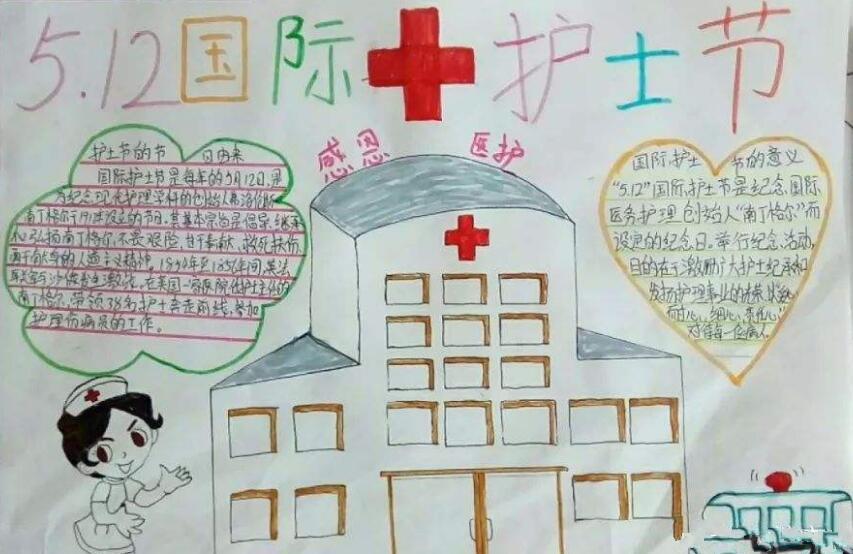 5.12国际护士节
感恩 医护
护士节的节 日由来
国际护士节是每年的5月12日,是
为纪念现代护理学科的创始人弗洛伦斯
南丁格尔于1912年设立的节日。其基本宗旨是倡导、继承
和弘扬南丁格尔不畏艰险、甘于奉献、救死扶伤、
勇于献身的人道主义精神。1854年至1856年间,英法
联军与沙俄发生激战。在英国一家医院任护士主任的
南丁格尔,带领38名护士奔走前线,参加
护理伤病员的工作。
国际护士 节的意义
“5.12”国际护士节是纪念国际
医务护理创始人“南丁格尔”而
设定的纪念日。举行纪念活动,
目的在于激励广大护士继承和
发扬护理事业的
耐心、细心、责任心
对待每一位病人